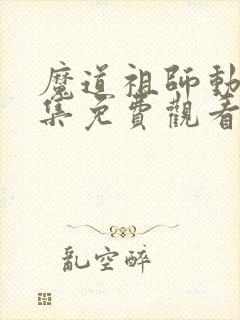 魔道祖師動
集免費觀看
亂空醉